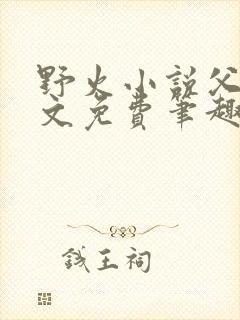 野火小说父
文免费笔趣
钱王祠